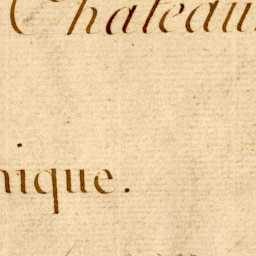 Chateau
nique.